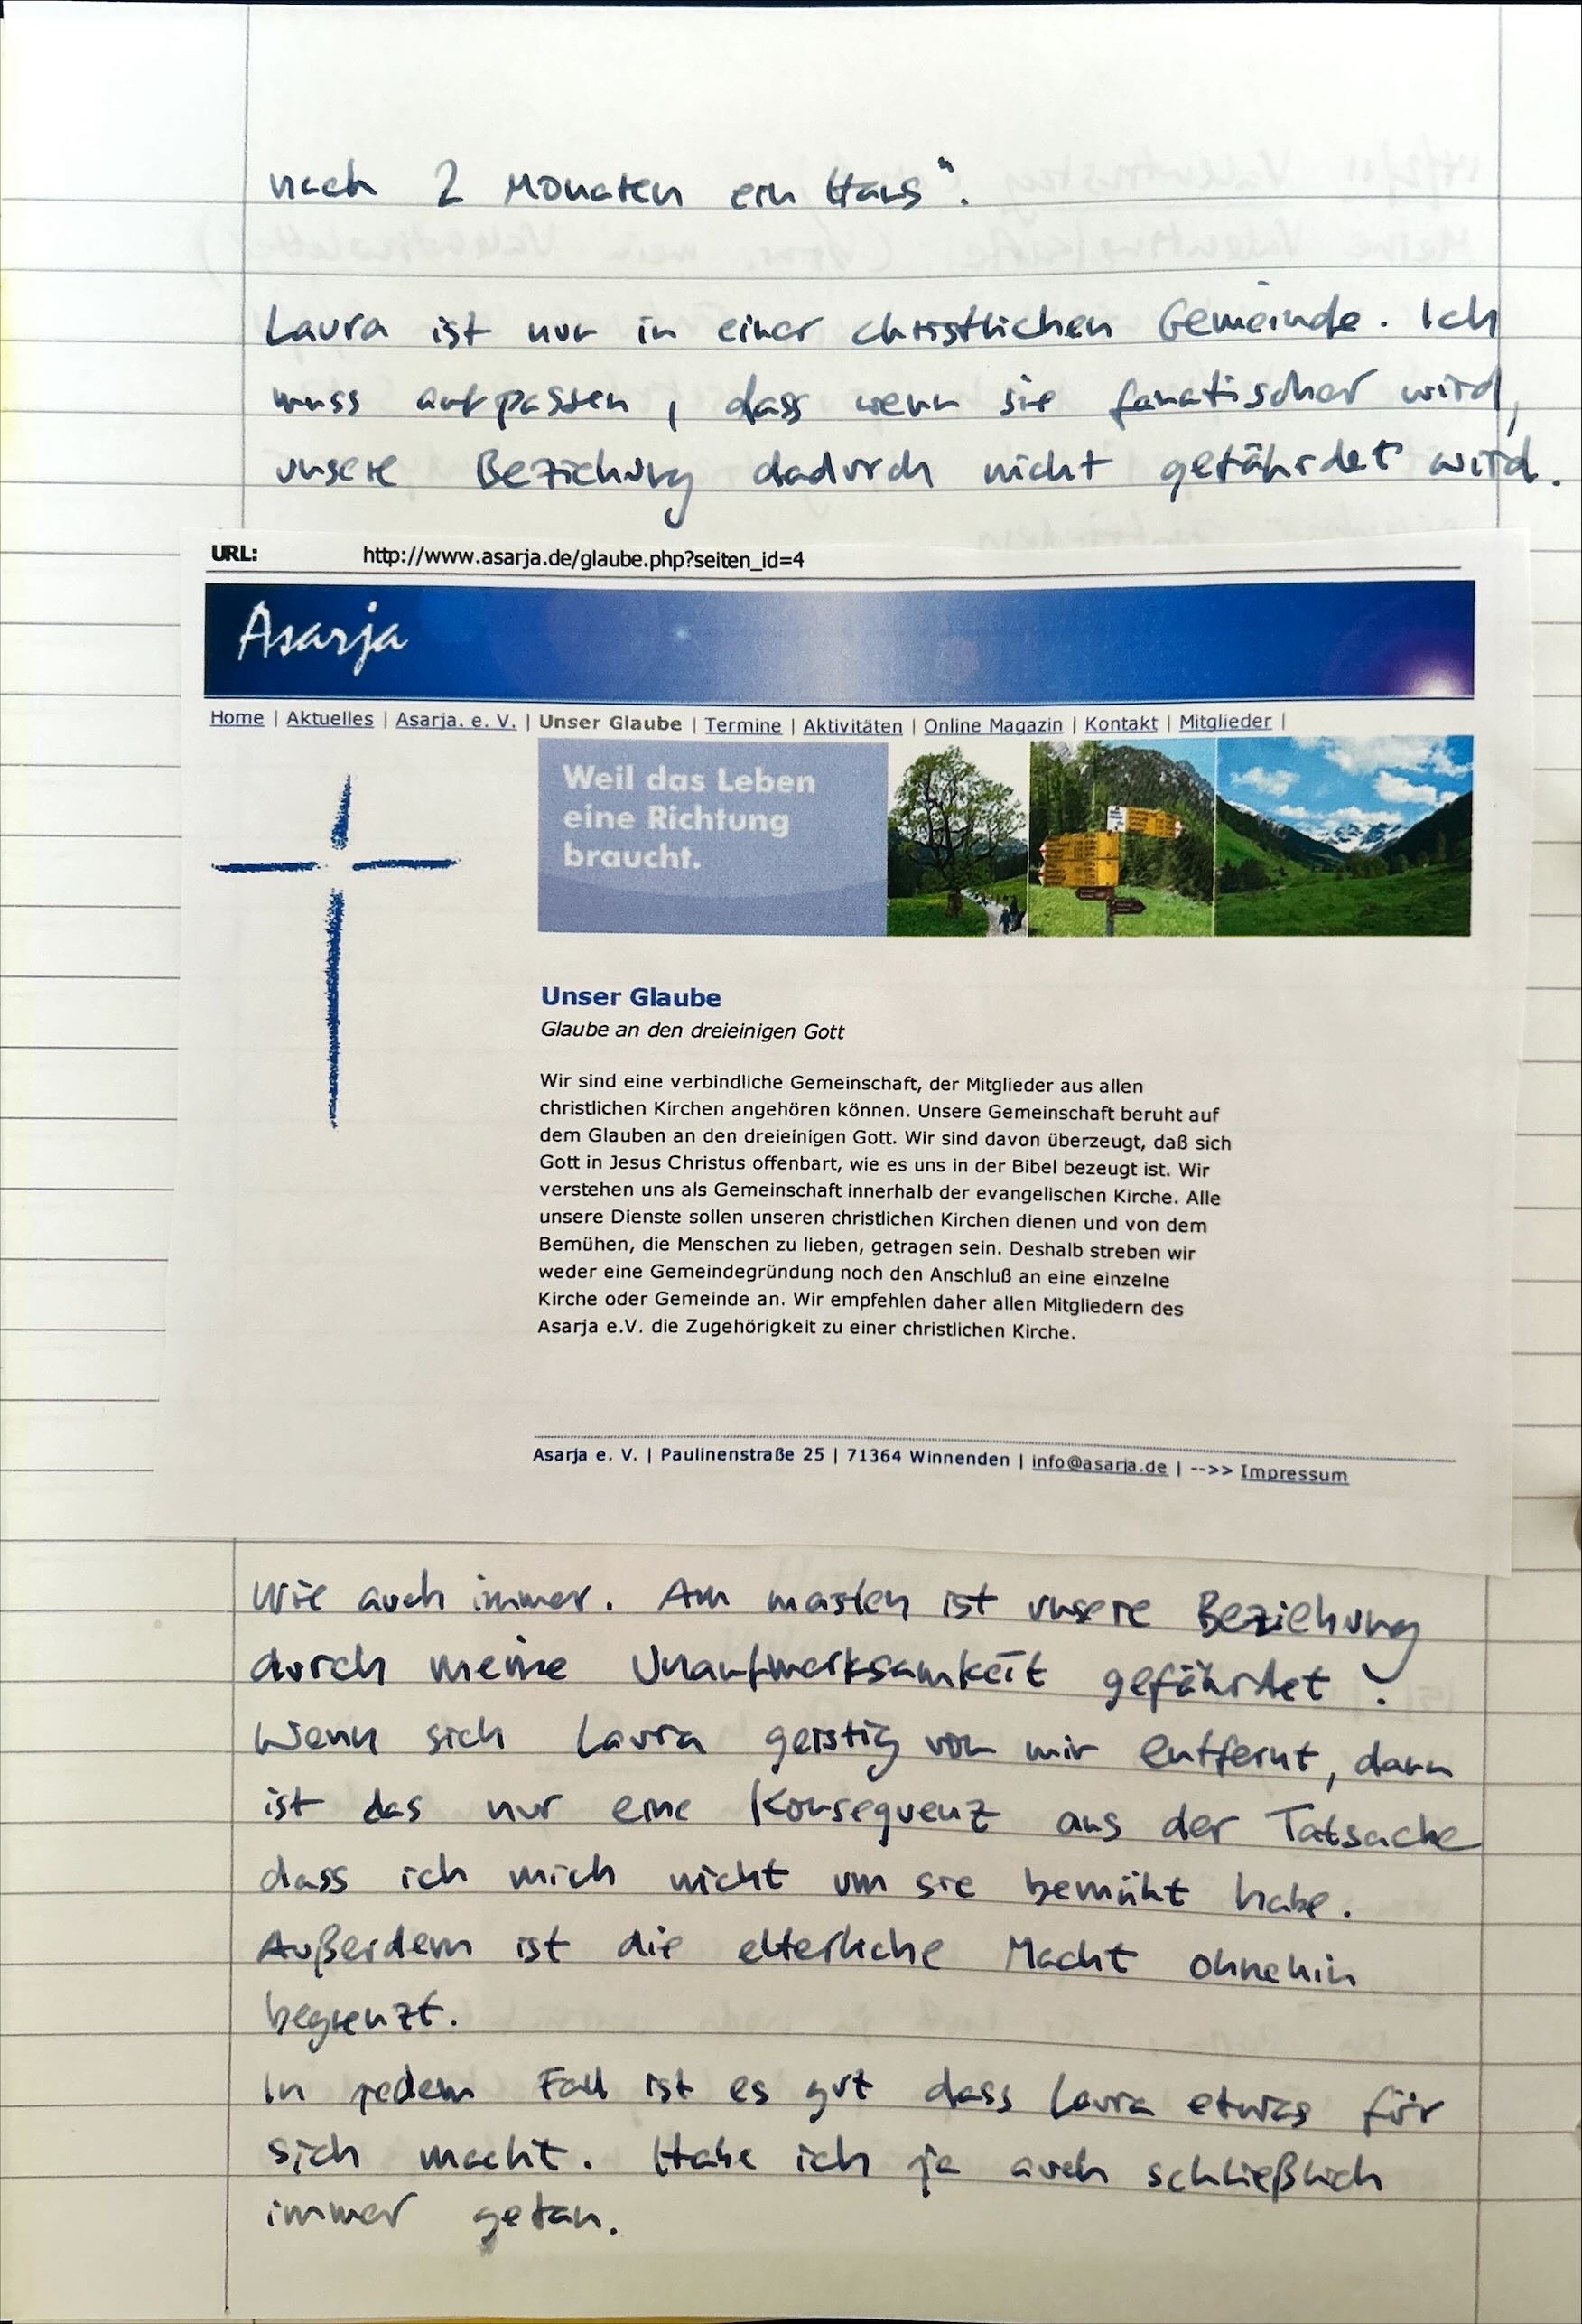 nach 2 Monaten ein Haus".
Laura ist nur in einer christlichen Gemeinde. Ich
muss aufpassen, dass wenn sie fanatischer wird,
unsere Beziehung dadurch nicht gefährdet wird.
URL: http://www.asarja.de/glaube.php?seiten_id=4
Asarja
Home | Aktuelles | Asarja. e. V. | Unser Glaube | Termine | Aktivitäten | Online Magazin | Kontakt | Mitglieder |
Weil das Leben
eine Richtung
braucht.
Unser Glaube
Glaube an den dreieinigen Gott
Wir sind eine verbindliche Gemeinschaft, der Mitglieder aus allen
christlichen Kirchen angehören können. Unsere Gemeinschaft beruht auf
dem Glauben an den dreieinigen Gott. Wir sind davon überzeugt, daß sich
Gott in Jesus Christus offenbart, wie es uns in der Bibel bezeugt ist. Wir
verstehen uns als Gemeinschaft innerhalb der evangelischen Kirche. Alle
unsere Dienste sollen unseren christlichen Kirchen dienen und von dem
Bemühen, die Menschen zu lieben, getragen sein. Deshalb streben wir
weder eine Gemeindegründung noch den Anschluß an eine einzelne
Kirche oder Gemeinde an. Wir empfehlen daher allen Mitgliedern des
Asarja e.V. die Zugehörigkeit zu einer christlichen Kirche.
Asarja e. V. | Paulinenstraße 25 | 71364 Winnenden | info@asarja.de | -->> Impressum
Wie auch immer. Am meisten ist unsere Beziehung
durch meine Unaufmerksamkeit gefährdet!
Wenn sich Laura geistig von mir entfernt, dann
ist das nur eine Konsequenz aus der Tatsache
dass ich mich nicht um sie bemüht habe.
Außerdem ist die elterliche Macht ohnehin
begrenzt.
In jedem Fall ist es gut dass Laura etwas für
sich macht. Habe ich ja auch schließlich
immer getan.